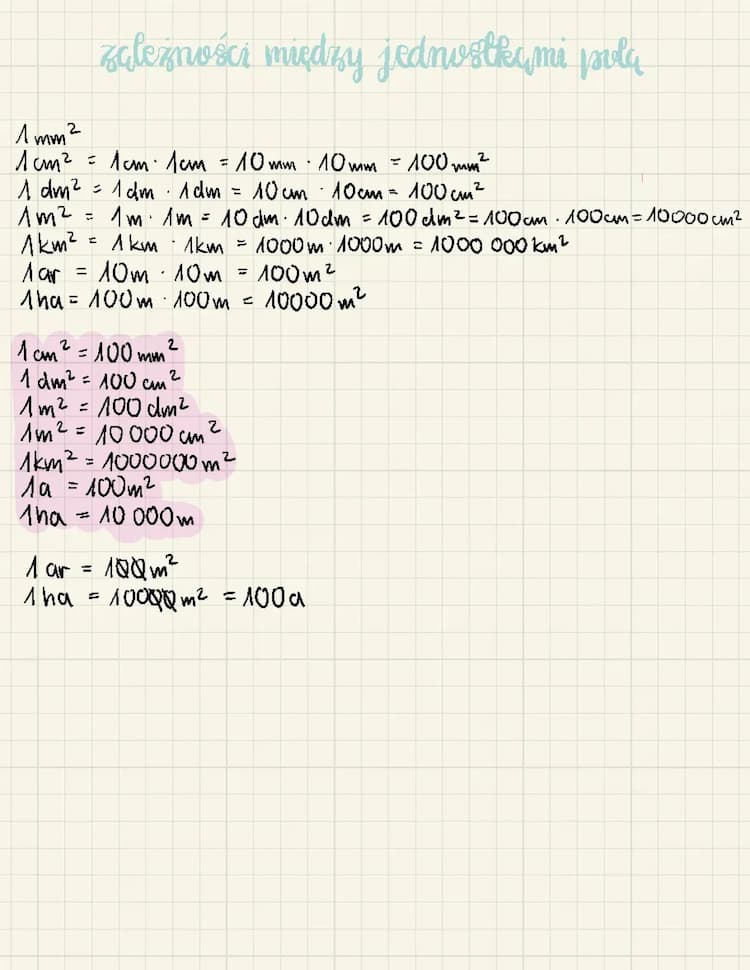 zależności między jednostkami pola
1 mm²
1 cm² = 1 cm · 1 cm = 10 mm · 10 mm = 100 mm²
1 dm² = 1 dm · 1 dm = 10 cm · 10 cm = 100 cm²
1 m² = 1 m · 1 m = 10 dm · 10 dm = 100 dm² = 100 cm · 100 cm = 10000 cm²
1 km² = 1 km · 1 km = 1000 m · 1000 m = 1000 000 km²
1 ar = 10 m · 10 m = 100 m²
1 ha = 100 m · 100 m = 10000 m²
1 cm² = 100 mm²
1 dm² = 100 cm²
1 m² = 100 dm²
1 m² = 10 000 cm²
1 km² = 1000000 m²
1 a = 100 m²
1 ha = 10 000 m
1 ar = 100 m²
1 ha = 10000 m² = 100 a